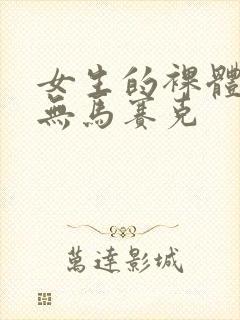 女生的裸體
無馬賽克
萬達影城